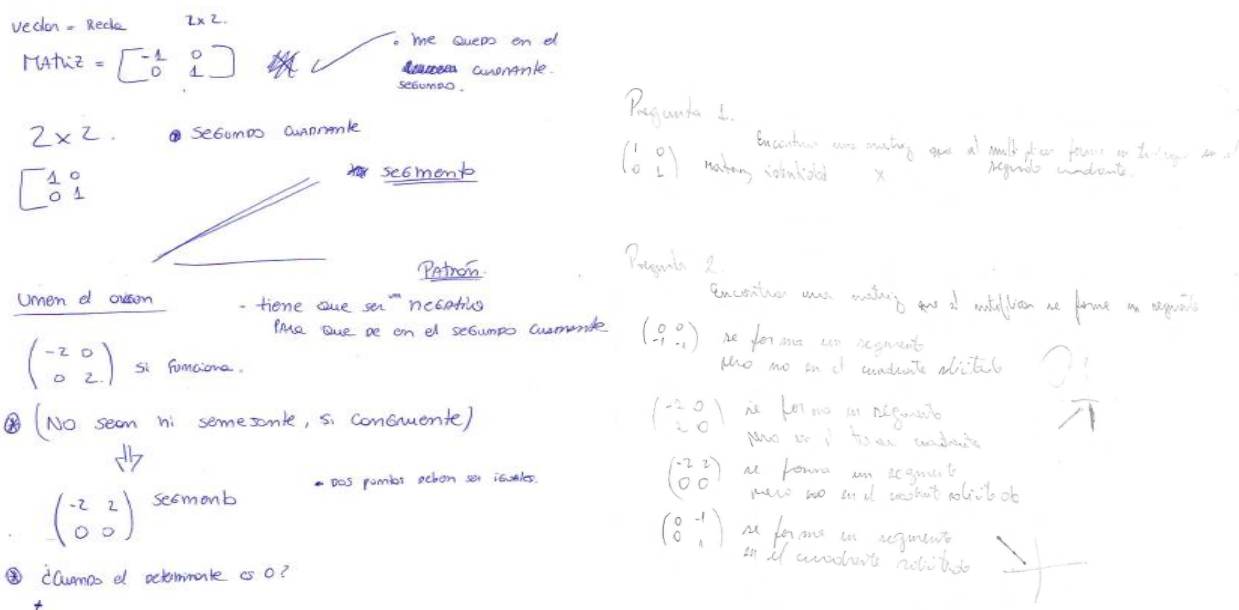 vector = Recta 2x2.
MATRIZ = [-1 0
0 1]
• me quedo en el
cuadrante.
segundo.
2x2. • Segundo cuadrante
[1 0
0 1
segmento
Patrón.
- tiene que ser un negativo
para que de en el segundo cuadrante
(-2 0
0 2) si funciona.
(No sean ni semejante, si congruente)
(-2 2
0 0) segmento
• Dos puntos deben ser iguales.
¿Cuando el determinante es 0?
Pregunta 1.
Encontrar una matriz que al multiplicar forme un triángulo en el
segundo cuadrante.
(1 0
0 1) matriz identidad x
Pregunta 2.
Encontrar una matriz que al multiplicar se forme un segmento
(0 0
-1 -1) se forma un segmento
pero no en el cuadrante solicitado
(-2 0
2 0) se forma un segmento
pero en el tercer cuadrante
(-2 2
0 0) se forma un segmento
pero no en el cuadrante solicitado
(0 -1
0 1) se forma un segmento
en el cuadrante solicitado